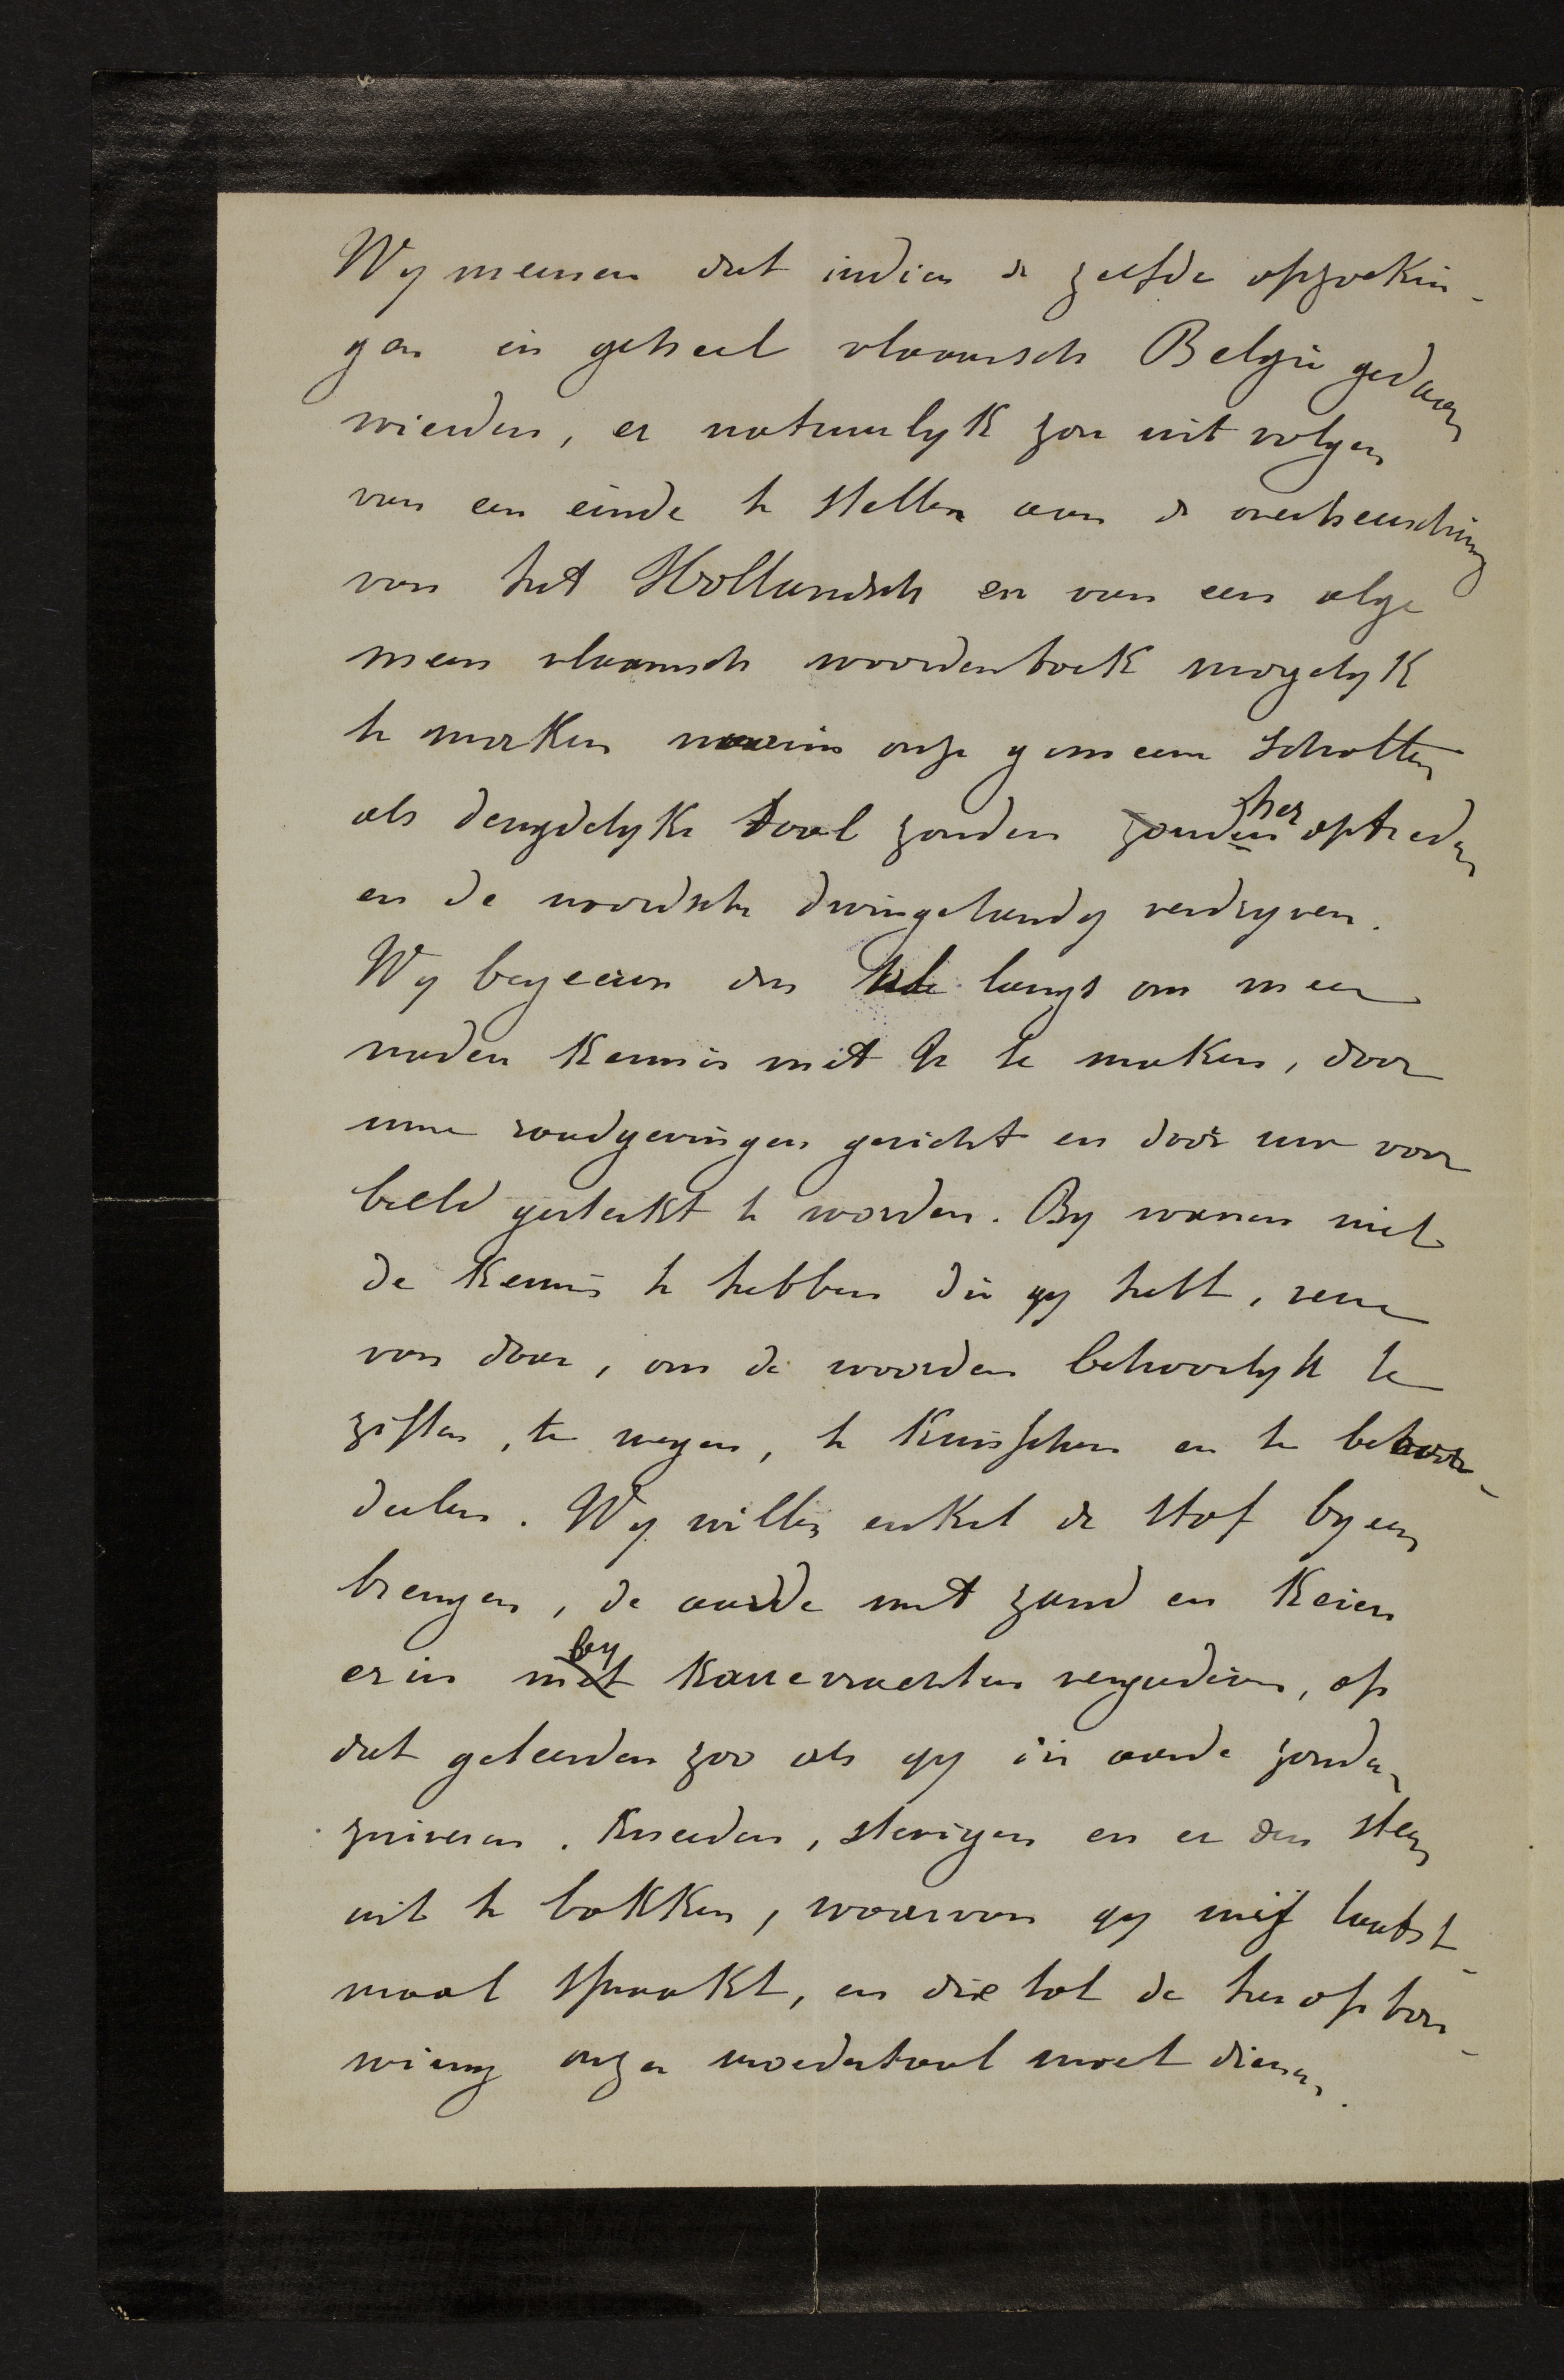 Wy meenen dat indien de zelfde opzoekin-
gen in geheel vlaamsch Belgie gedaan
wierden, er natuurlyk zou uit volgen
van een einde te stellen aan de overheersching
van het Hollandsch en van een alge
meen vlaamsch woordenboek mogelyk
te maken waarin onze gemeene schatten
als deugdelyke taal zouden zouden her optreden
en de noordsche dwingelandy verdryven.
Wy begeeren dus langs om meer
nader kennis met U te maken, door
uwe raadgevingen gericht en door uw voor
beeld gesterkt te worden. Wy wanen niet
de kennis te hebben die gy hebt, verre
van daar, om de woorden behoorlyk te
ziften, te wegen, te kuisschen en te beoor-
deelen. Wy willen enkel de stof byeen
brengen, de aarde met zand en keien
er in met by karrevrachten vergaderen, op
dat geleerden zoo als gy die aarde zouden
zuiveren, kneeden, stevigen en er den steen
uit te bakken, waarvan gy mij laatst-
maal spraakt, en die tot de heropbou-
wing onzer moedertaal moet dienen.